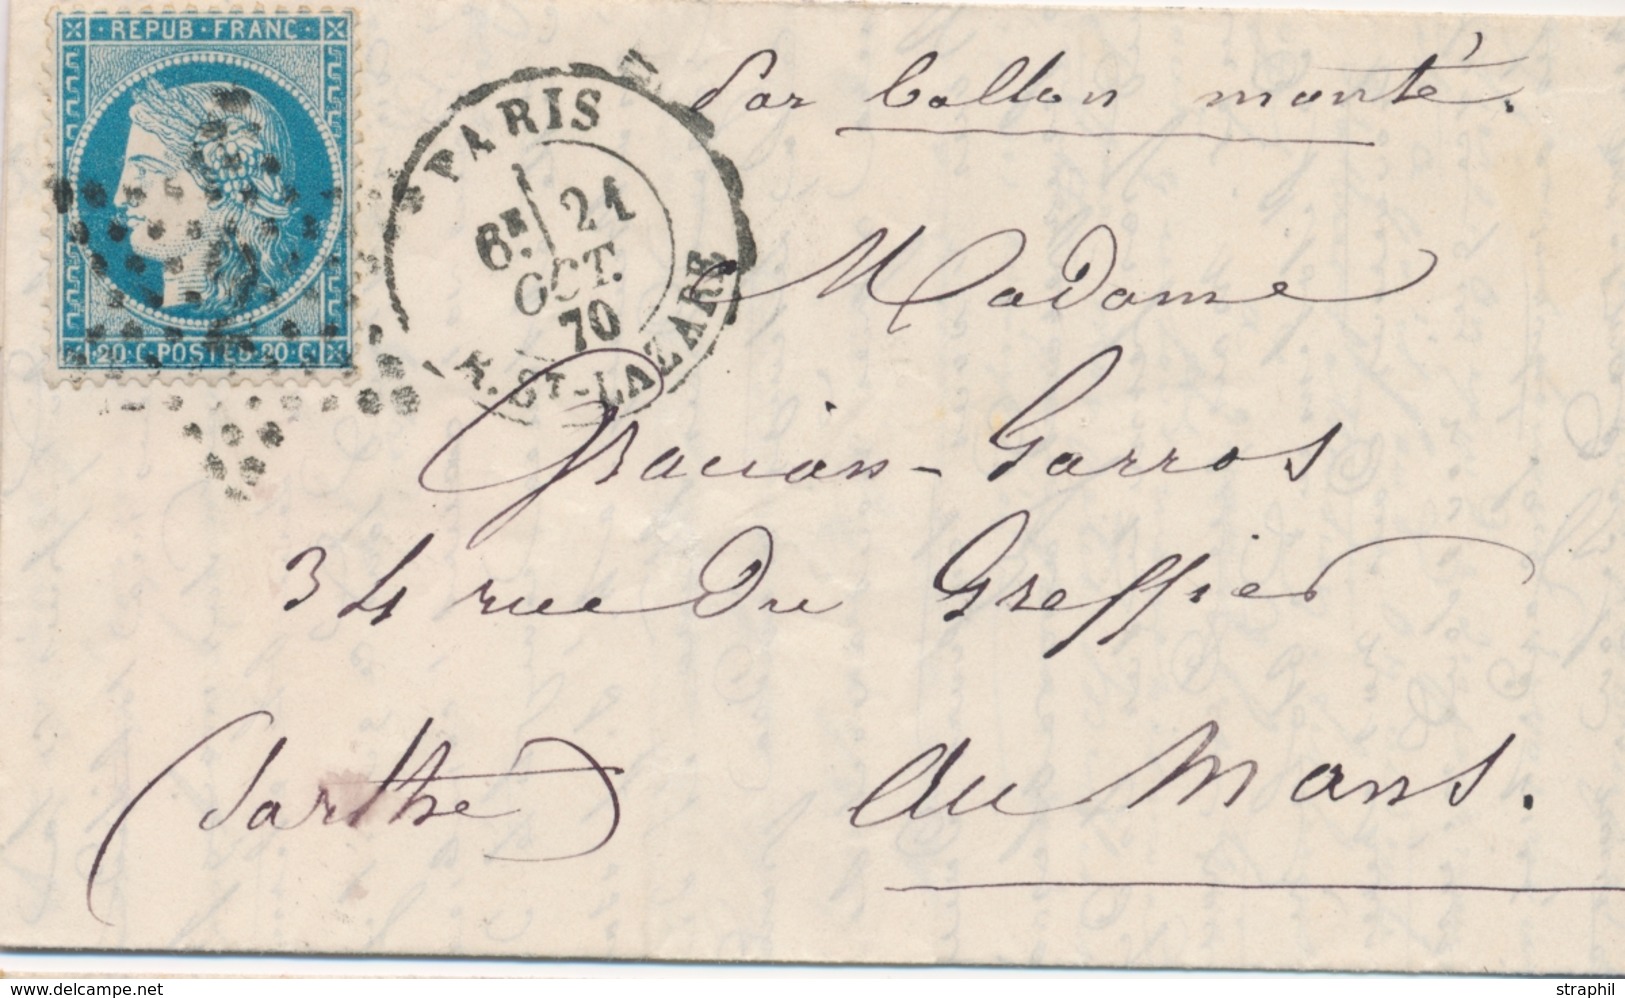 REPUB · FRANC ·
20 C POSTES 20 C
PARIS
6E 21
OCT.
70
R. ST-LAZARE
Par ballon monté.
Madame
Gracian-Garros
34 rue du Greffier
au Mans.
(Sarthe)
www.delcampe.net
straphil